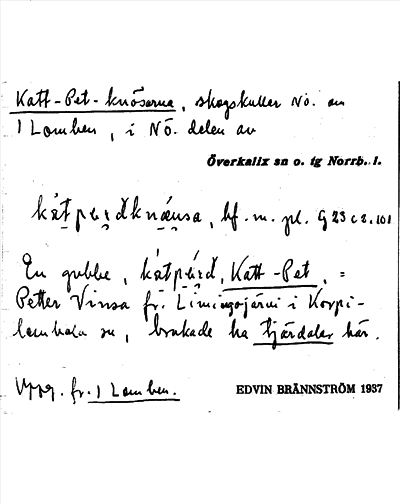 Katt-Pet-knösarna, skogskullar NO. om
1 Lomben, i NÖ. delen av
Överkalix sn o. tg Norrb. l.
bf. m. pl. G 23 c 2. 101
En gubbe, Katt-Pet, =
Petter Vinsa fr. Limingojärvi i Korpi-
lombolo sn, brukade ha tjärdalar här.
Uppg. fr. 1 Lomben.
EDVIN BRÄNNSTRÖM 1937